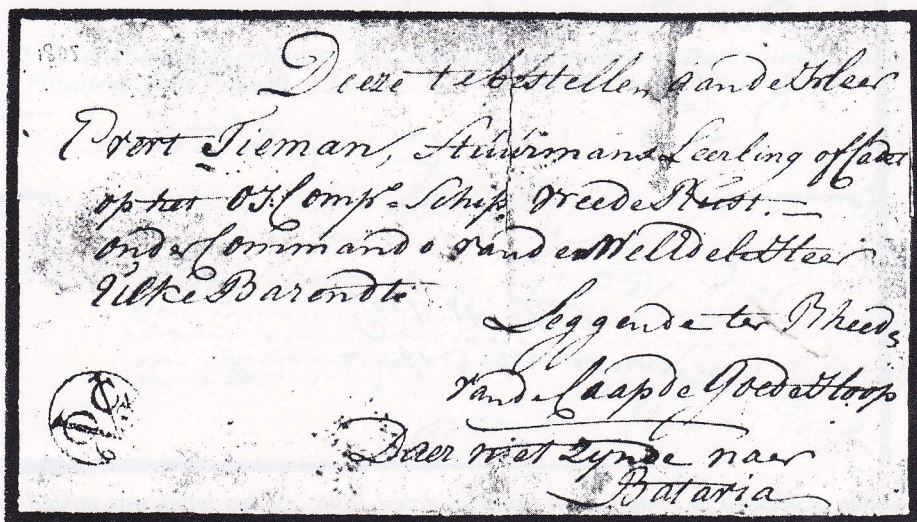 Deeze te bestellen aan de Heer
Evert Tieman, Stuurmans Leerling of Cadet
op het O I Compe Schip Vreede Rust.
onder Commando van den Wel Edele Heer
Barendts
Leggende ter Rheede
van de Caap de Goede Hoop
Daer niet zynde naer
Batavia